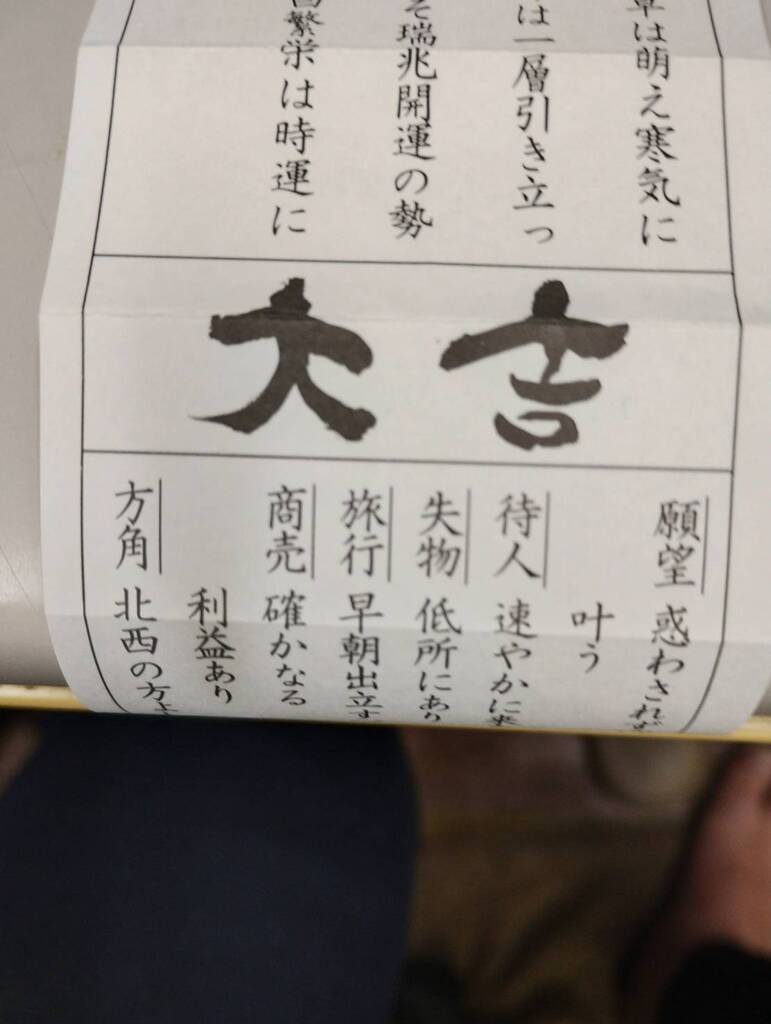 草は萌え寒気に
は一層引き立っ
そ瑞兆開運の勢
繁栄は時運に
大吉
願望 惑わされ
叶う
待人 速やかに
失物 低所にあり
旅行 早朝出立す
商売 確かなる
利益あり
方角 北西の方